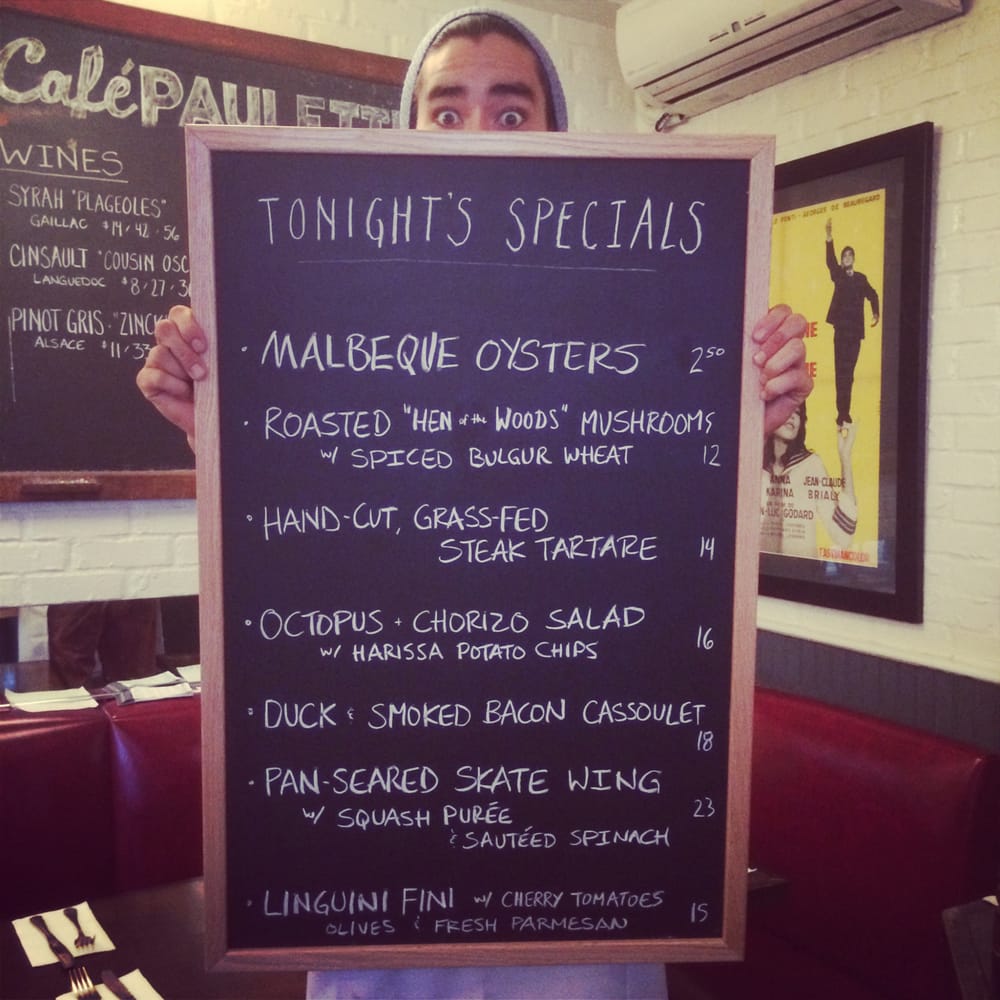 Café PAULETTE
WINES
SYRAH "PLAGEOLES"
GAILLAC $14/42/56
CINSAULT "COUSIN OSC
LANGUEDOC $8/27/3
PINOT GRIS - "ZINCK
ALSACE $11/33
TONIGHT'S SPECIALS
· MALBEQUE OYSTERS 2⁵⁰
· ROASTED "HEN of the WOODS" MUSHROOMS
w/ SPICED BULGUR WHEAT 12
· HAND-CUT, GRASS-FED
STEAK TARTARE 14
· OCTOPUS + CHORIZO SALAD
w/ HARISSA POTATO CHIPS 16
· DUCK & SMOKED BACON CASSOULET
18
· PAN-SEARED SKATE WING
w/ SQUASH PURÉE 23
& SAUTÉED SPINACH
· LINGUINI FINI w/ CHERRY TOMATOES
OLIVES & FRESH PARMESAN 15
PONTI - GEORGES DE BEAUREGARD
NE
ME
ANNA JEAN-CLAUDE
KARINA BRIALY
UN FILM DE
N-LUC GODARD
EASTMANCOLOR